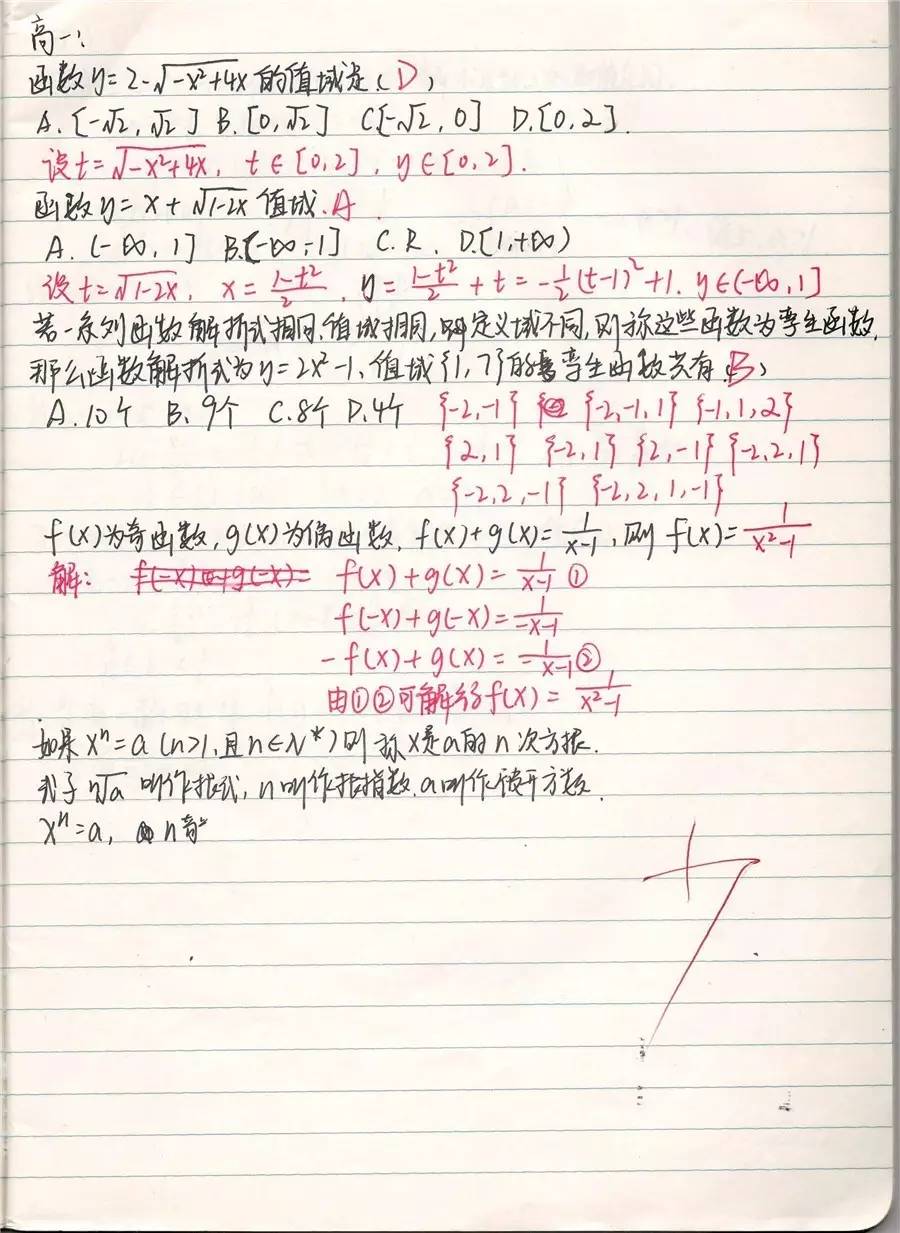 高一:
函数y=2-√(-x²+4x) 的值域是(D)
A.[-√2,√2] B.[0,√2] C.[-√2,0] D.[0,2].
设t=√(-x²+4x), t∈[0,2], y∈[0,2].
函数y=x+√(1-2x) 值域.A.
A.(-∞,1] B.(-∞,-1] C.R. D.[1,+∞)
设t=√(1-2x), x=(1-t²)/2, y=(1-t²)/2+t=-1/2(t-1)²+1. y∈(-∞,1]
若一系列函数解析式相同,值域相同,定义域不同,则称这些函数为孪生函数,
那么函数解析式为y=2x²-1,值域{1,7}的孪生函数共有(B)
A.10个 B.9个 C.8个 D.4个 {-2,-1} {-2,-1,1} {-1,1,2}
{2,1} {-2,1} {2,-1} {-2,2,1}
{-2,2,-1} {-2,2,1,-1}
f(x)为奇函数,g(x)为偶函数, f(x)+g(x)=1/(x-1),则 f(x)=1/(x²-1)
解: f(x)+g(x)=1/(x-1) ①
f(-x)+g(-x)=1/(-x-1)
-f(x)+g(x)=1/(-x-1) ②
由①②可解得f(x)=1/(x²-1)
如果xⁿ=a(n>1,且n∈N*)则称x是a的n次方根.
式子ⁿ√a 叫作根式,n叫作根指数.a叫作被开方数.
xⁿ=a, n奇